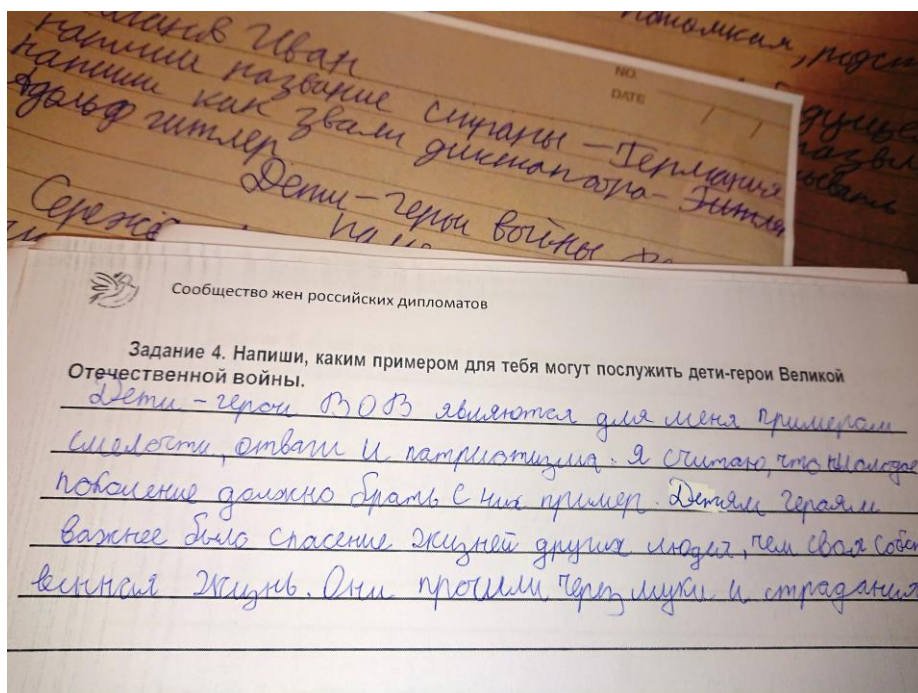 Иван
потомкам,
напиши название страны – Германия
напиши как звали диктатора – Гитлер
Адольф гитлер
NO.
DATE / /
Дети – герои войны
Сережа
Сообщество жен российских дипломатов
Задание 4. Напиши, каким примером для тебя могут послужить дети-герои Великой
Отечественной войны.
Дети – герои ВОВ являются для меня примером
смелости, отваги и патриотизма. Я считаю, что молодое
поколение должно брать с них пример. Детям героям
важнее было спасение жизней других людей, чем своя собст
венная жизнь. Они прошли через муки и страдания